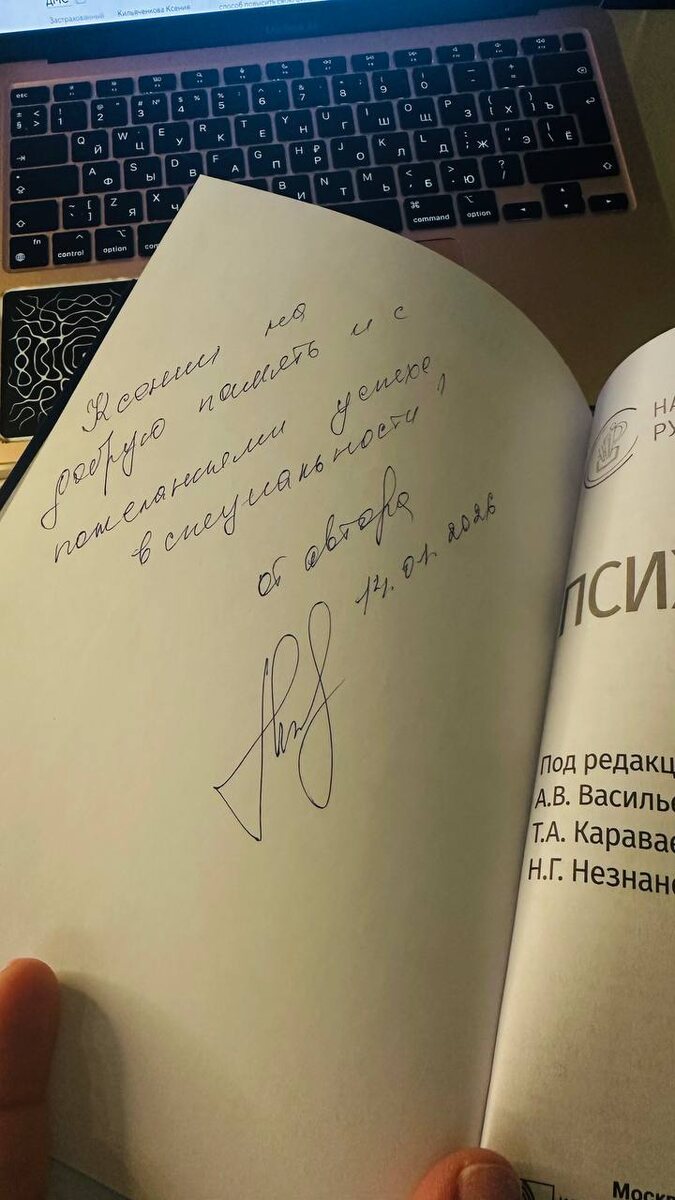 ДМС
Застрахованный Кильяченкова Ксения
esc
± § < > ! 1 @ 2 " # 3 № $ 4 % % 5 : ^ 6 , & 7 . * 8 ; ( 9 ) 0 _ - + =
Q Й W Ц E У R К T Е Y Н U Г I Ш O Щ P З { [ Х } ] Ъ
A Ф S Ы D В F А G П H Р ₽ J О K Л L Д : ; Ж " ' Э | \ Ё
~ ` [ ] Z Я X Ч В И N Т M Ь < , Б > . Ю ? /
fn control option command option
Ксении на
добрую память и с
пожеланиями успеха
в специальности,
от автора
14.01.2026
НА
РУ
ПСИХ
Под редакц
А.В. Василье
Т.А. Каравае
Н.Г. Незнано
Москв